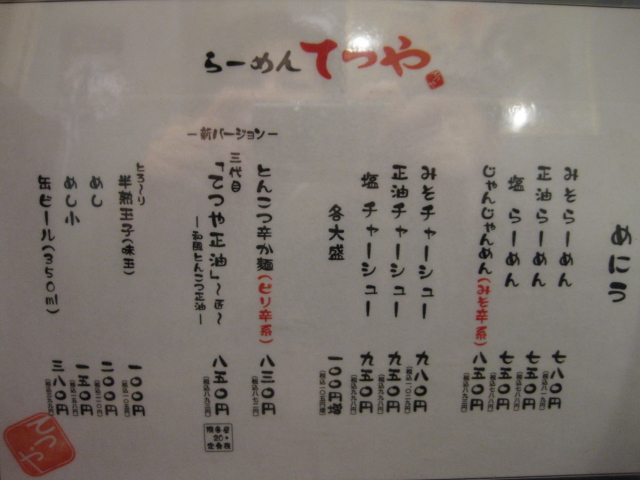 らーめん てつや
めにう
みそらーめん 七八〇円
(税込八一九円)
正油らーめん 七五〇円
塩 らーめん 七五〇円
じゃんじゃんめん(みそ辛系) 八五〇円
みそチャーシュー 九八〇円
(税込一〇二九円)
正油チャーシュー 九五〇円
塩 チャーシュー 九五〇円
各大盛 一〇〇円増
－新バージョン－
とんこつ辛か麺(ピリ辛系) 八三〇円
三代目
「てつや正油」～匠～ 八五〇円
－和風とんこつ正油－
とろ～り
半熟玉子(味玉) 一〇〇円
めし 二〇〇円
めし小 一五〇円
缶ビール(350ml) 三八〇円
てつや